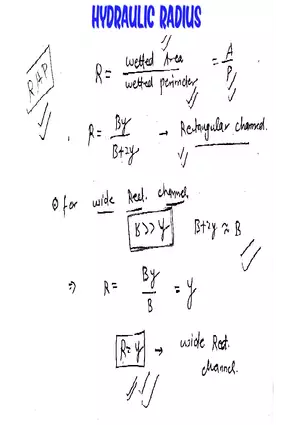 HYDRAULIC RADIUS
RAP
R = wetted Area / wetted perimeter = A / P
R = By / B+2y → Rectangular channel.
for wide Rect. channel
B>>y B+2y ≈ B
⇒ R = By / B = y
R=y → wide Rect. channel.